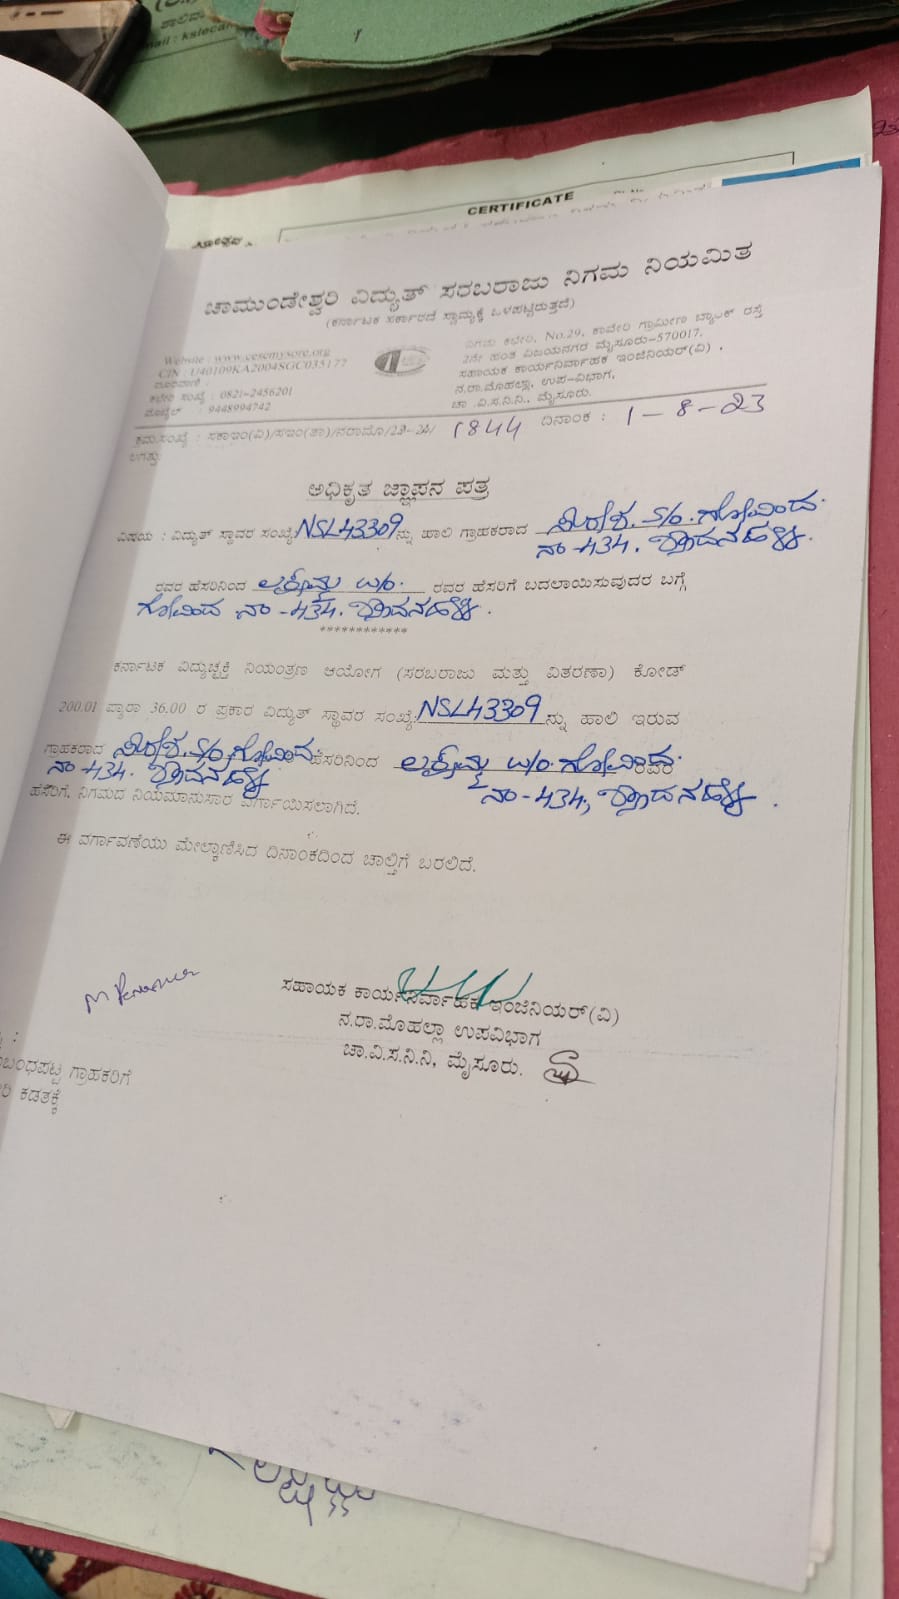 CERTIFICATE
ಚಾಮುಂಡೇಶ್ವರಿ ವಿದ್ಯುತ್ ಸರಬರಾಜು ನಿಗಮ ನಿಯಮಿತ
(ಕರ್ನಾಟಕ ಸರ್ಕಾರದ ಸ್ವಾಮ್ಯಕ್ಕೆ ಒಳಪಟ್ಟಿರುತ್ತದೆ)
Website : www.cescmysore.org
CIN : U40109KA2004SGC035177
ದೂರವಾಣಿ :
ಕಛೇರಿ ಸಂಖ್ಯೆ : 0821-2456201
ಮೊಬೈಲ್ : 9448994742
ನಿಗಮ ಕಛೇರಿ, No.29, ಕಾವೇರಿ ಗ್ರಾಮೀಣ ಬ್ಯಾಂಕ್ ರಸ್ತೆ
2ನೇ ಹಂತ ವಿಜಯನಗರ ಮೈಸೂರು-570017.
ಸಹಾಯಕ ಕಾರ್ಯನಿರ್ವಾಹಕ ಇಂಜಿನಿಯರ್(ವಿ) ,
ನ.ರಾ.ಮೊಹಲ್ಲಾ, ಉಪ-ವಿಭಾಗ,
ಚಾ .ವಿ.ಸ.ನಿ.ನಿ., ಮೈಸೂರು.
ಕ್ರಮ.ಸಂಖ್ಯೆ : ಸಕಾಇಂ(ವಿ)/ಸಇಂ(ತಾ)/ನರಾಮೊ/23-24/ 1844 ದಿನಾಂಕ : 1-8-23
ಲಗತ್ತು:
ಅಧಿಕೃತ ಜ್ಞಾಪನ ಪತ್ರ
ವಿಷಯ : ವಿದ್ಯುತ್ ಸ್ಥಾವರ ಸಂಖ್ಯೆ NSL43309 ನ್ನು ಹಾಲಿ ಗ್ರಾಹಕರಾದ S/o. ಗೋವಿಂದ.
ನಂ-434.
ರವರ ಹೆಸರಿನಿಂದ ಲಕ್ಷ್ಮಮ್ಮ W/o. ರವರ ಹೆಸರಿಗೆ ಬದಲಾಯಿಸುವುದರ ಬಗ್ಗೆ
ಗೋವಿಂದ ನಂ-434.
************
ಕರ್ನಾಟಕ ವಿದ್ಯುಚ್ಛಕ್ತಿ ನಿಯಂತ್ರಣ ಆಯೋಗ (ಸರಬರಾಜು ಮತ್ತು ವಿತರಣಾ) ಕೋಡ್
200.01 ಪ್ಯಾರಾ 36.00 ರ ಪ್ರಕಾರ ವಿದ್ಯುತ್ ಸ್ಥಾವರ ಸಂಖ್ಯೆ: NSL43309 ನ್ನು ಹಾಲಿ ಇರುವ
ಗ್ರಾಹಕರಾದ S/o ಗೋವಿಂದ ಹೆಸರಿನಿಂದ ಲಕ್ಷ್ಮಮ್ಮ W/o. ಗೋವಿಂದ. ರವರ
ನಂ-434. ನಂ-434,
ಹೆಸರಿಗೆ, ನಿಗಮದ ನಿಯಮಾನುಸಾರ ವರ್ಗಾಯಿಸಲಾಗಿದೆ.
ಈ ವರ್ಗಾವಣೆಯು ಮೇಲ್ಕಾಣಿಸಿದ ದಿನಾಂಕದಿಂದ ಚಾಲ್ತಿಗೆ ಬರಲಿದೆ.
ಸಹಾಯಕ ಕಾರ್ಯನಿರ್ವಾಹಕ ಇಂಜಿನಿಯರ್(ವಿ)
ನ.ರಾ.ಮೊಹಲ್ಲಾ ಉಪವಿಭಾಗ
ಚಾ.ವಿ.ಸ.ನಿ.ನಿ, ಮೈಸೂರು.
ಬಂಧಪಟ್ಟ ಗ್ರಾಹಕರಿಗೆ
ರಿ ಕಡತಕ್ಕೆ